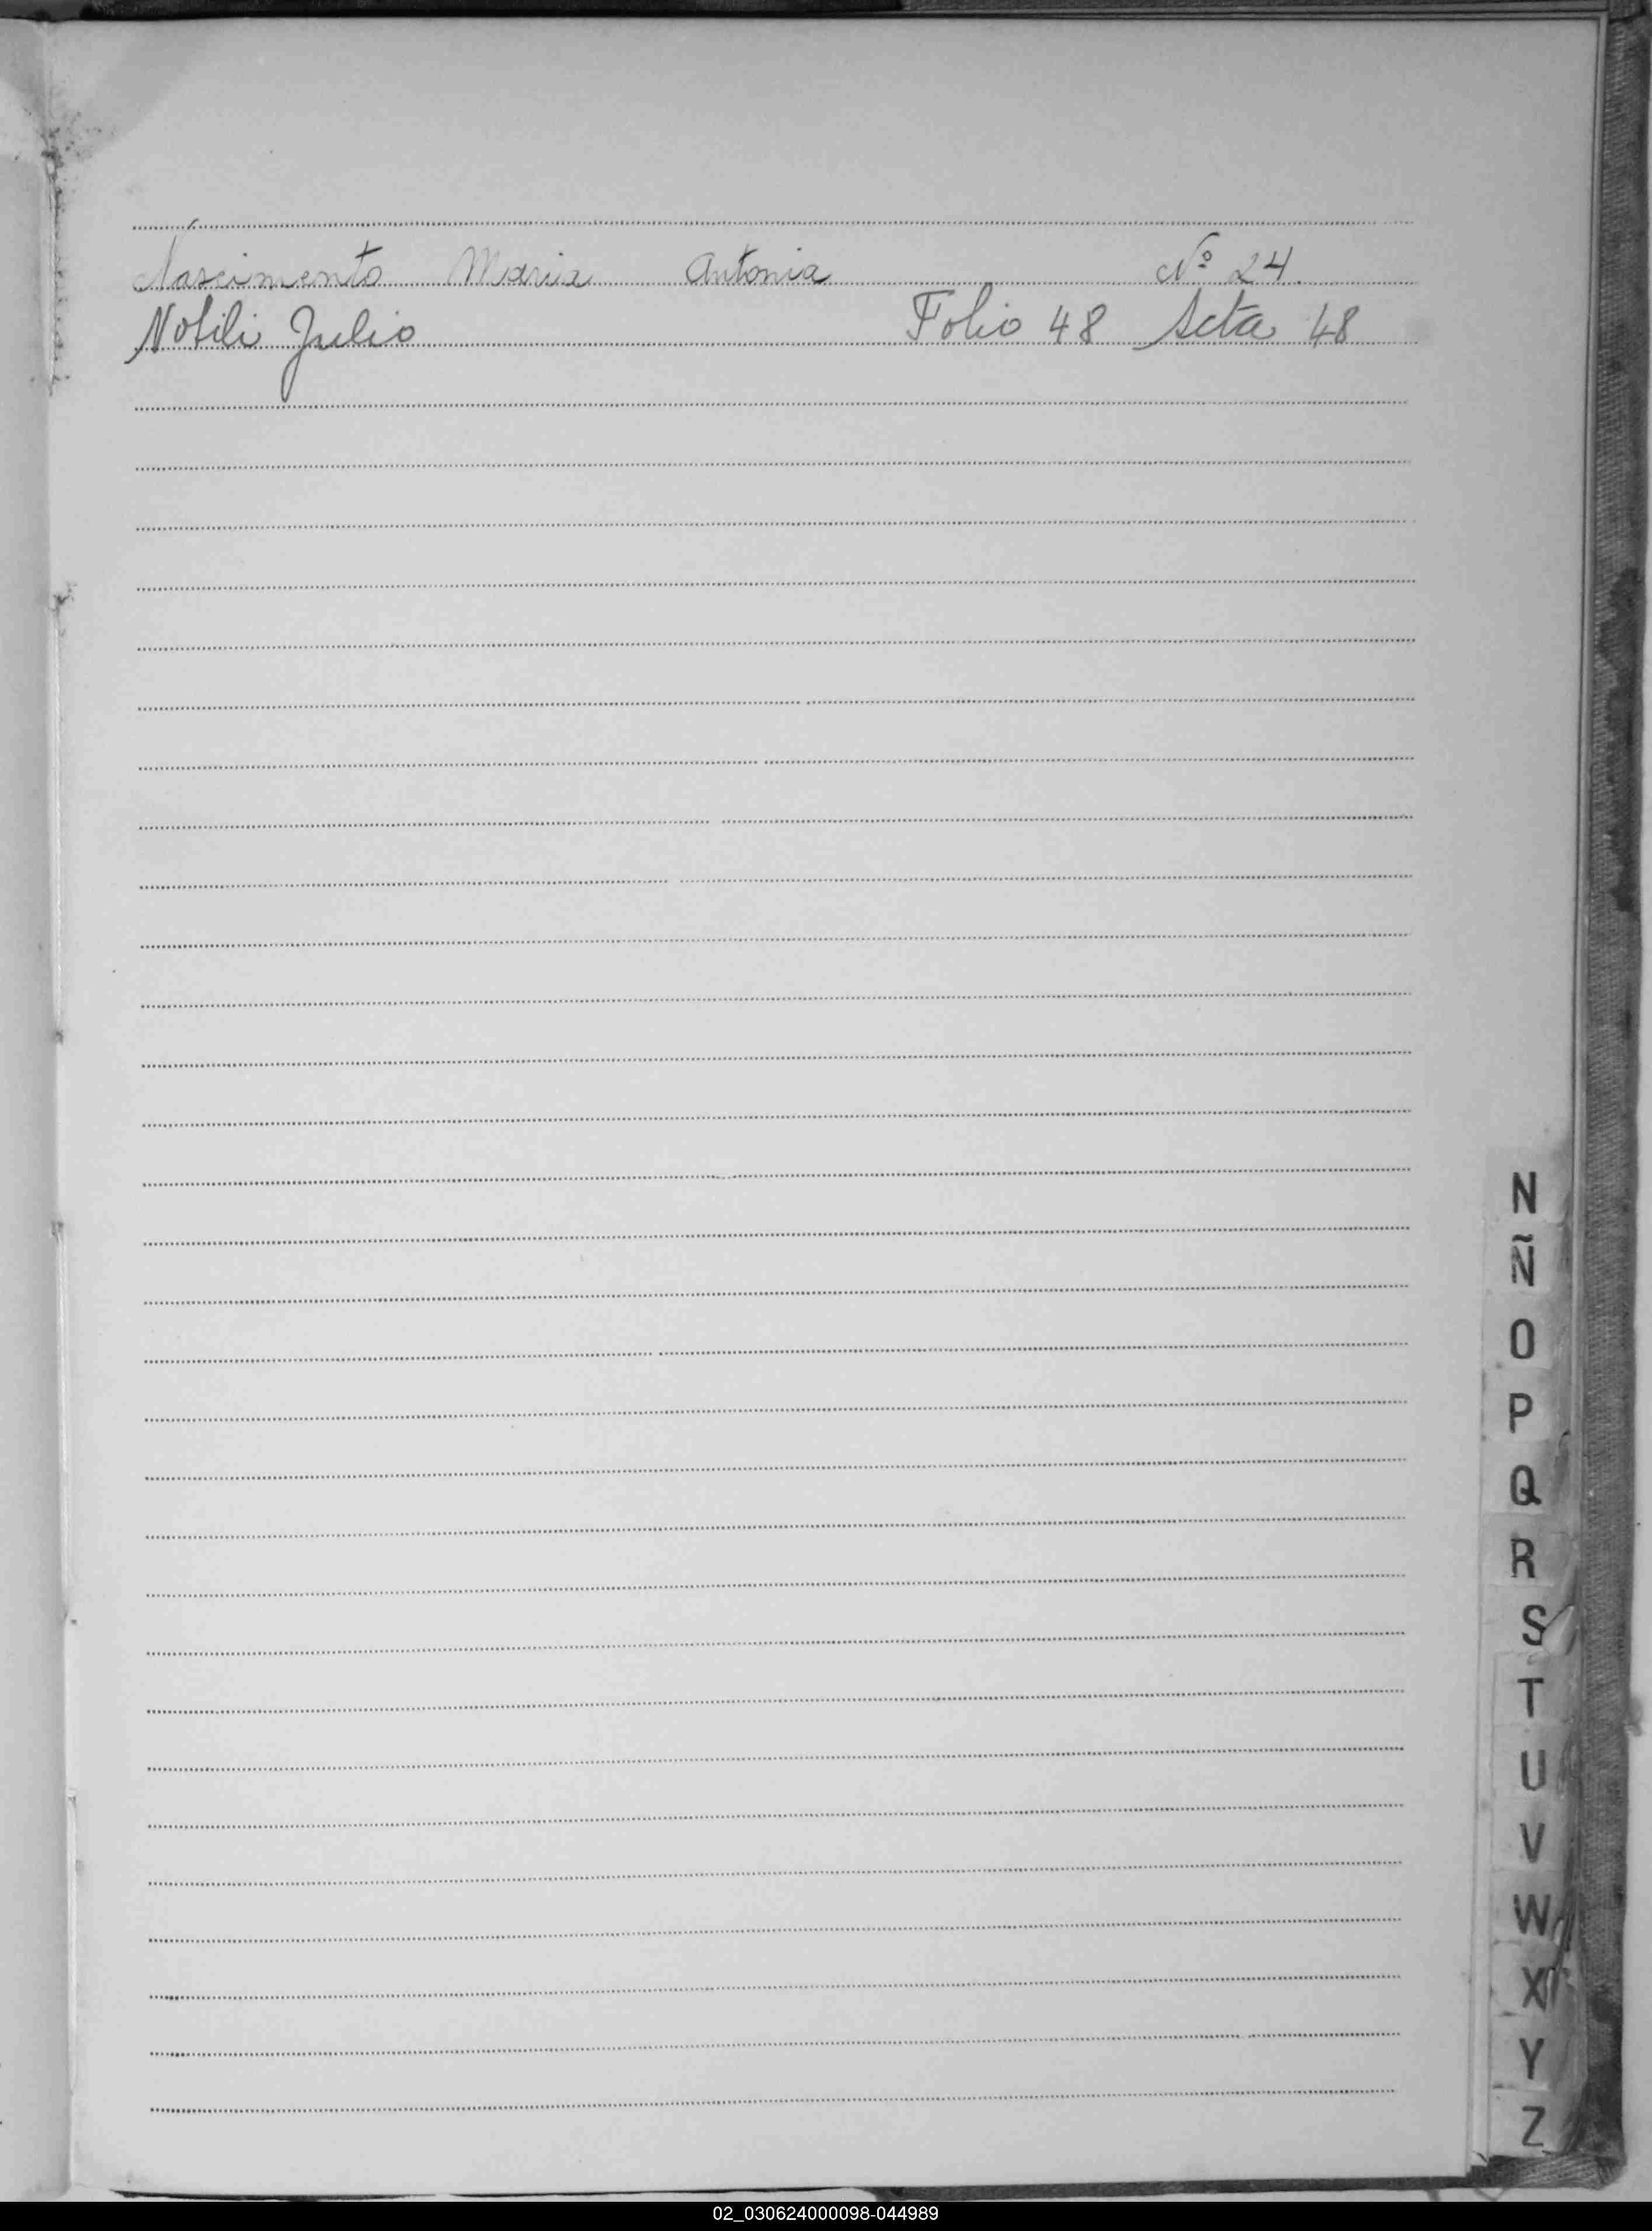 Nascimento Maria Antonia Nº 24
Nobili Julio Folio 48 Acta 48
N
Ñ
O
P
Q
R
S
T
U
V
W
X
Y
Z
02_030624000098-044989